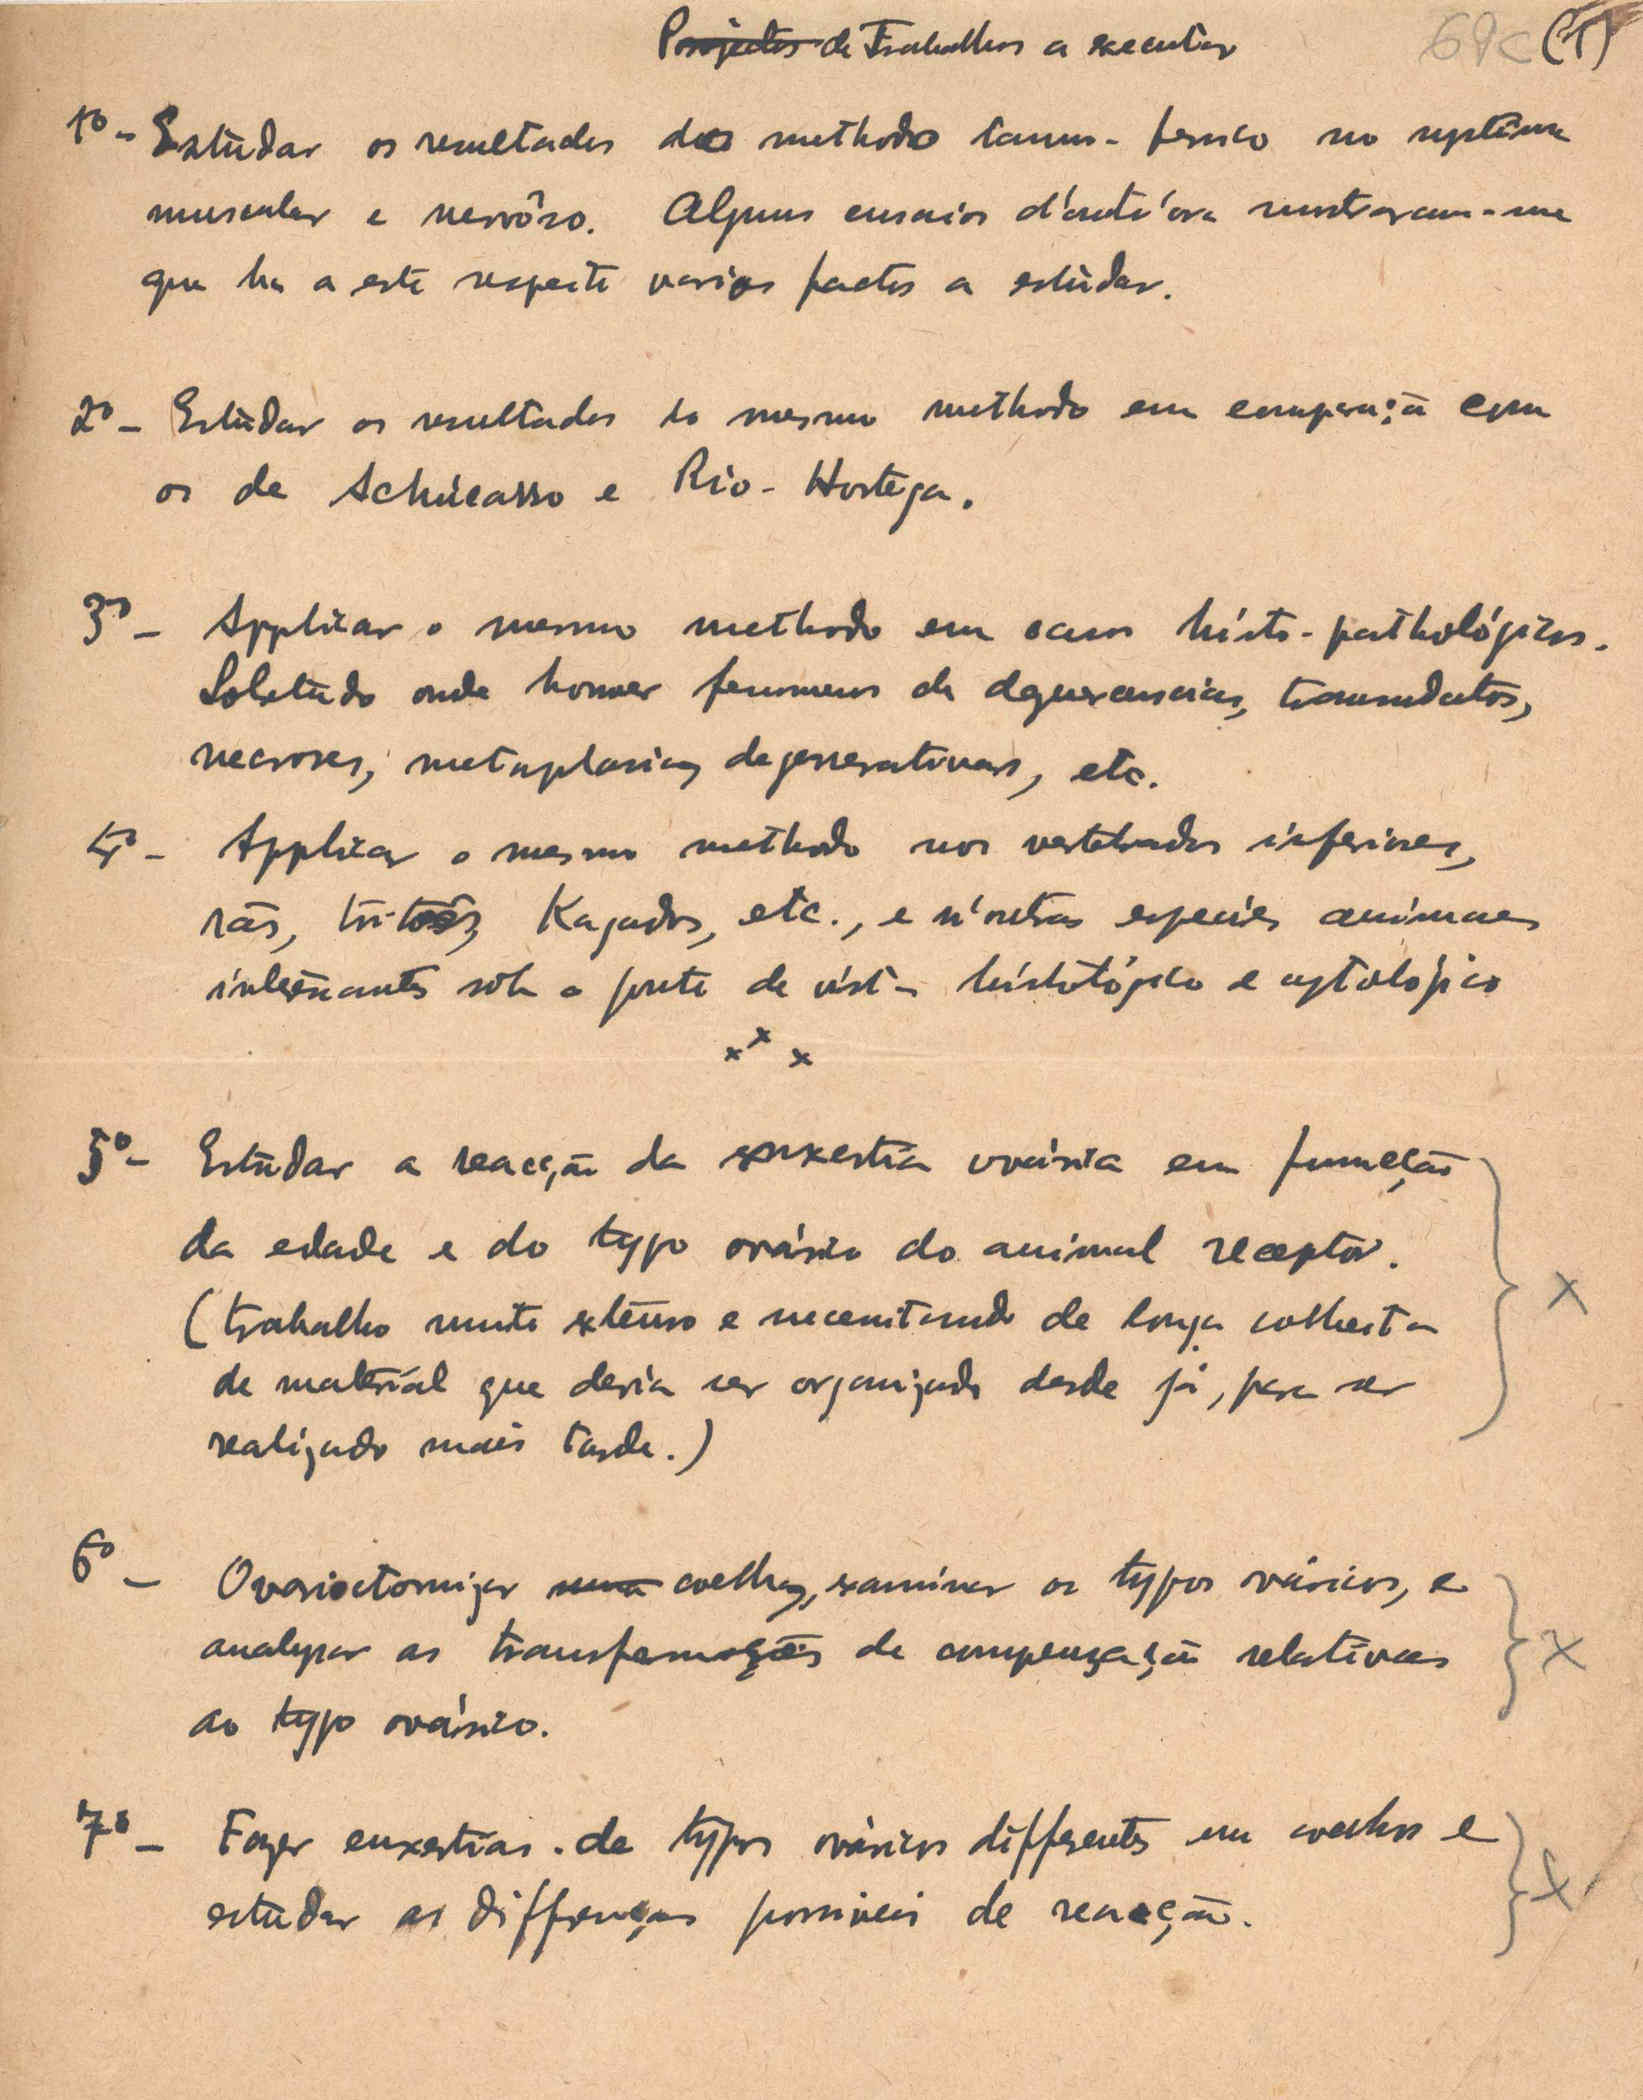 Projectos de Trabalhos a executar
68c (1)
1º - Estudar os resultados do methodo tanno-ferrico no systema
muscular e nervôso. Alguns ensaios d'outr'ora mostraram-me
que ha a este respeito varios factos a estudar.
2º - Estudar os resultados do mesmo methodo em comparação com
os de Achúcarro e Rio-Hortega.
3º - Applicar o mesmo methodo em casos histo-pathológicos.
Sobretudo onde houver fenomenos de degenerescencias, transudatos,
necroses, metaplasias degenerativas, etc.
4º - Applicar o mesmo methodo nos vertebrados inferiores,
rãs, tritões, Kagados, etc., e n'outras especies animaes
interessantes sob o ponto de vista histológico e cytológico
x x x
5º - Estudar a reacção da enxertia ovárica em funcção
da edade e do typo ovárico do animal receptor.
(trabalho muito extenso e necessitando de longa colheita
de material que devia ser organizado desde já, para ser
realizado mais tarde.)
X
6º - Ovariectomizar uma coelhas, examinar os typos ováricos, e
analysar as transformações de compensação relativas
ao typo ovárico.
X
7º - Fazer enxertias de typos ováricos differentes em coelhos e
estudar as differenças possiveis de reacção.
X